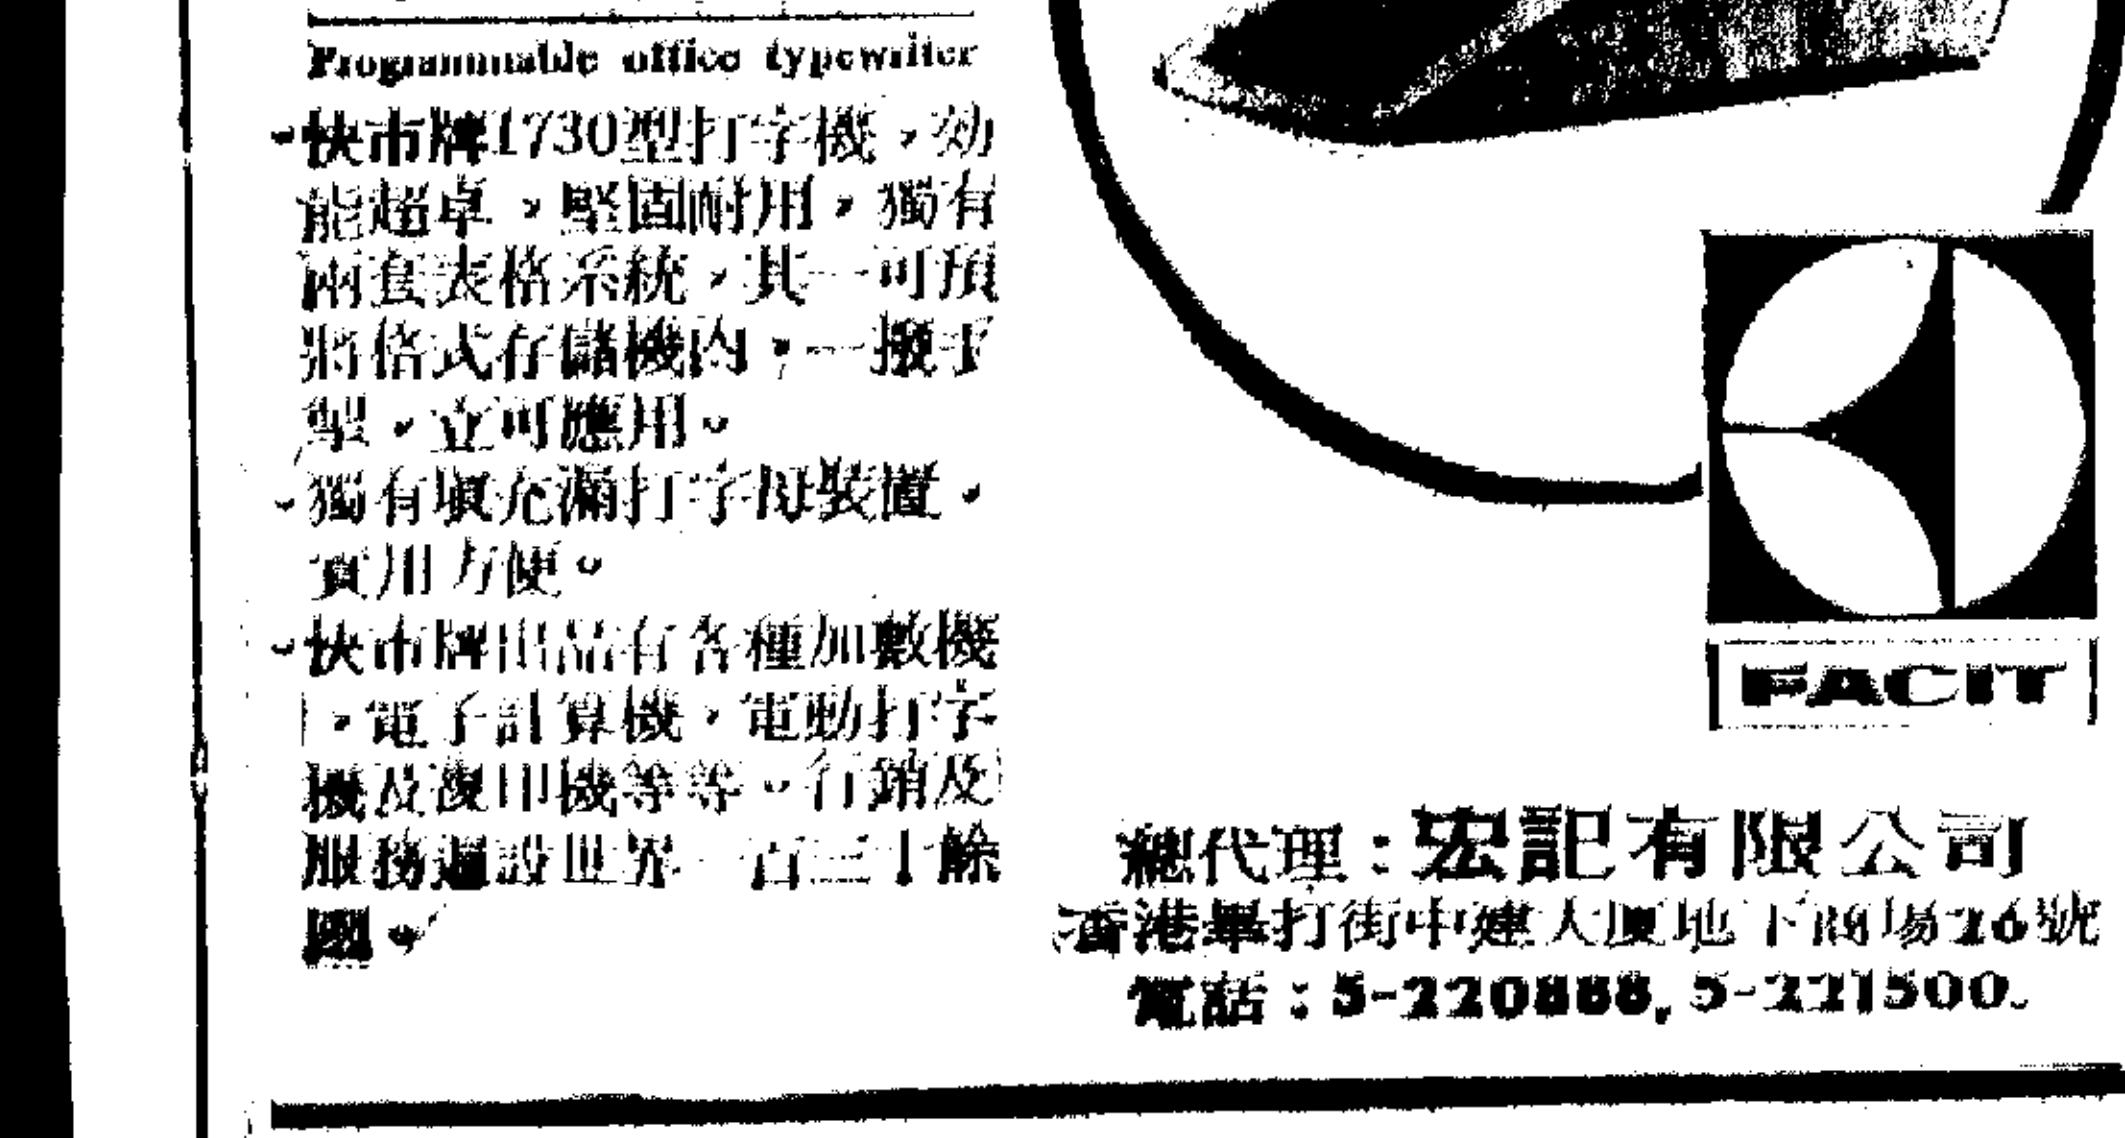 Programmable office typewriter
快市牌1730型打字機，効
能超卓，堅固耐用，獨有
兩套表格系統，其一可預
將格式存儲機內，一撳手
掣，立可應用。
獨有填充滿打字母裝置，
實用方便。
快市牌出品有各種加數機
，電子計算機，電動打字
機及複印機等等。行銷及
服務遍設世界一百三十餘
國。
FACIT
總代理：宏記有限公司
香港畢打街中建大廈地下商場26號
電話：5-220888, 5-221500.